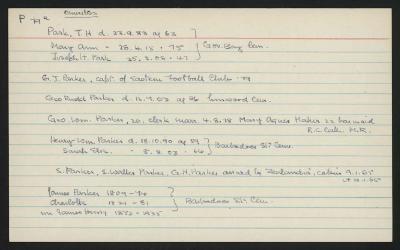 P
Park, T.H d. 22.9.83 ag 63
Mary Ann - 28.4.15 - 75 } Gov. Bay Cem.
Joseph H. Park 25.3.05 - 47
G.J. Parker, capt. of Eastern Football Club
Geo Rudd Parker d. 12.7.03 ag 86 Linwood Cem.
Geo. Wm. Parker, 20, clerk marr. 4.8.78 Mary Agnes Maher 22 barmaid
R.C. Cath. M.R.
Henry Wm. Parker d. 18.10.90 ag 59 } Barbadoes St Cem.
Sarah Eliz. - 5.8.03 - 66
S. Parker, S. Walter Parker, G.H. Parker arrived by Zealandia, cabin 9.1.65
James Parker 1809-74
Charlotte 1824-81 } Barbadoes St Cem.
James Henry 1852-1935